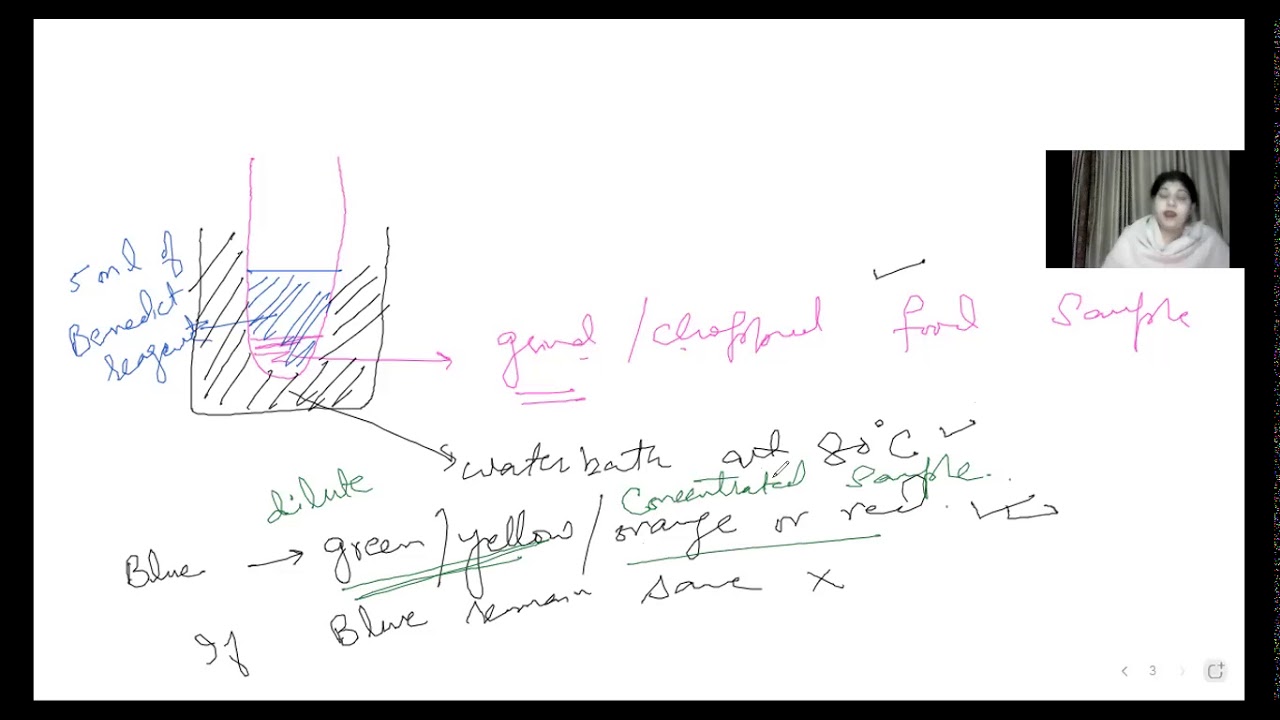 5 ml of
Benedict
reagent
grind / chopped food sample
waterbath at 80°C
dilute
Concentrated Sample.
Blue → green / yellow / orange or red.
If Blue remain same ×
3